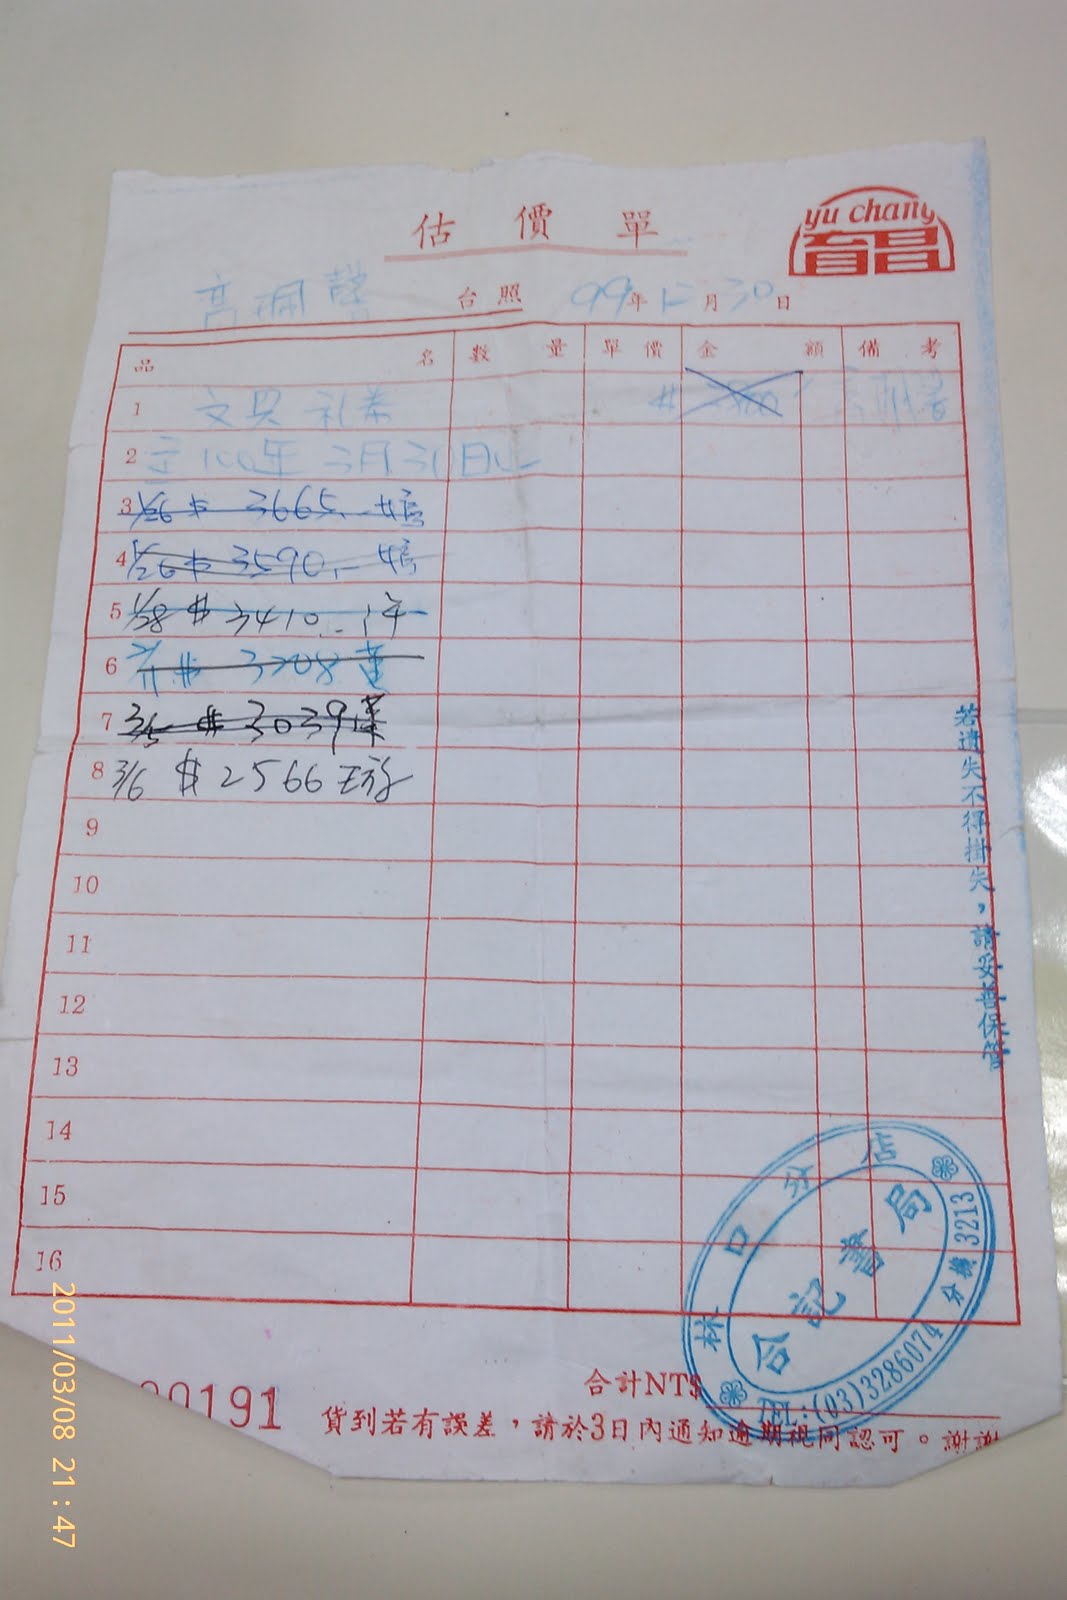 估價單
yu chang
育昌
高珮馨 台照 99年12月30日
品名 數量 單價 金額 備考
1 文具礼券 #
2 至100年3月30日止
3 1/26 $ 3665.-
4 1/26 $ 3590.-
5 1/28 $ 3410.-
6 $ 3208
7 3/5 $ 3039
8 3/6 $ 2566
9
10
11
12
13
14
15
16
若遺失不得掛失，請妥善保管
林口分店
合記書局
TEL:(03)3286074 分機3213
合計NT$
00191
貨到若有誤差，請於3日內通知逾期視同認可。謝謝
2011/03/08 21:47